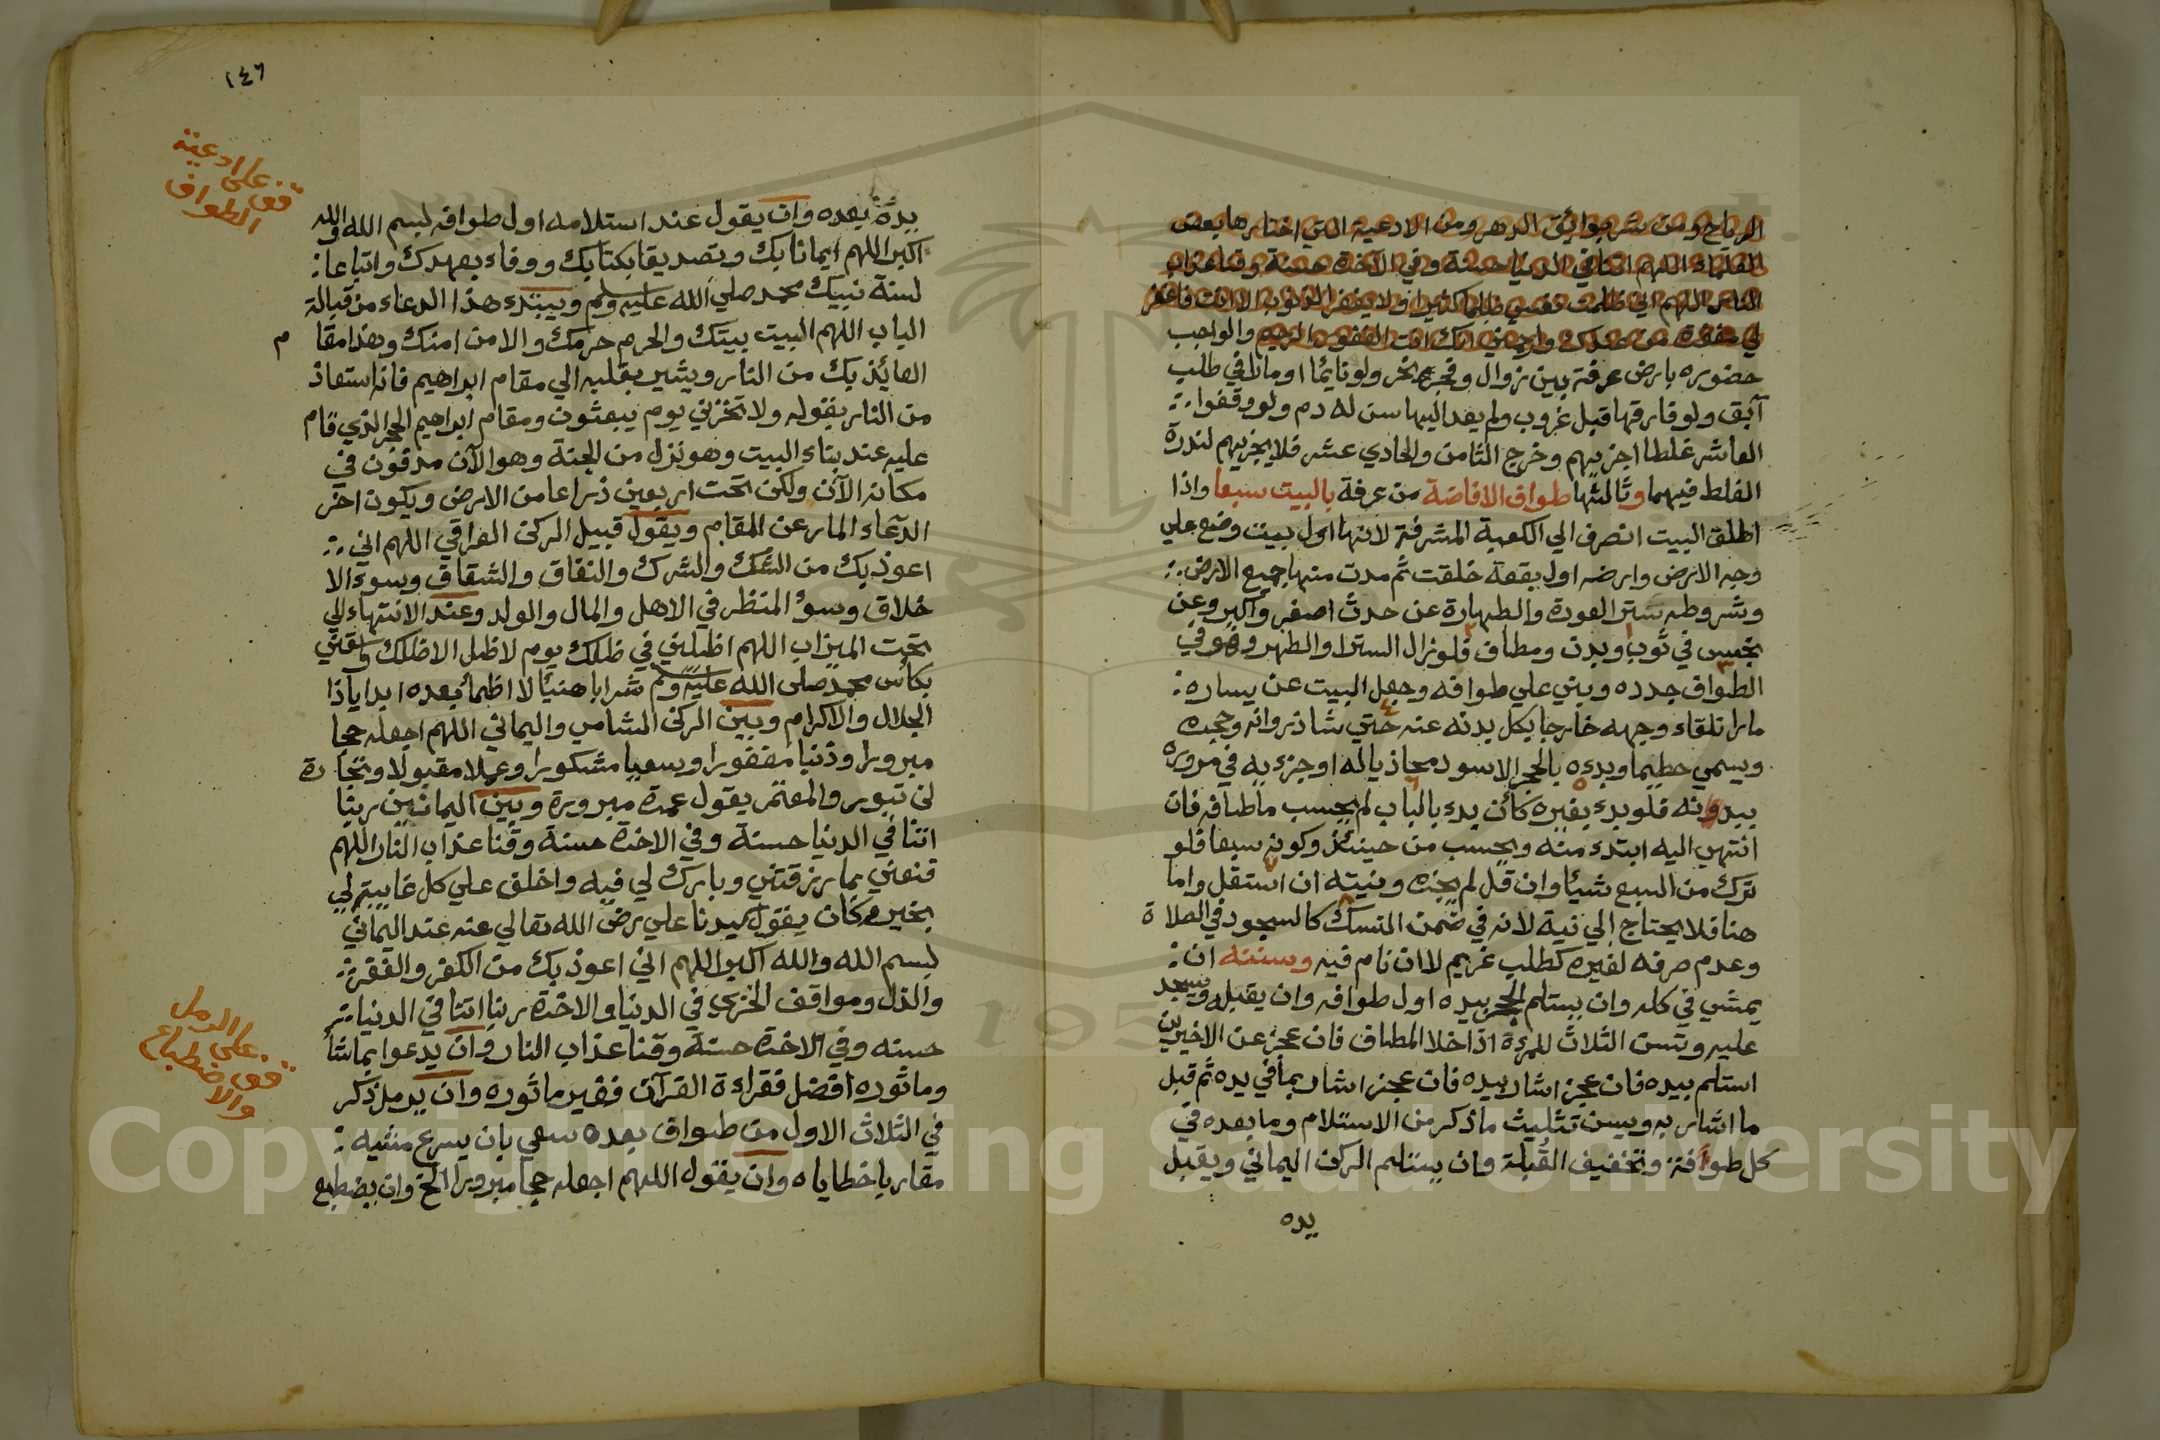 الرياح ومن شر بوائق الدهر ومن الادعية التي اختارها بعض
العلماء اللهم اتنا في الدنيا حسنة وفي الآخرة حسنة وقنا عذاب
النار اللهم اني ظلمت نفسي ظلما كثيرا ولا يغفر الذنوب الا انت فاغفر
لي مغفرة من عندك وارحمني انك انت الغفور الرحيم والواجب
حضوره بارض عرفة بين زوال وفجر نحر ولو نايما او مارا في طلب
آبق ولو فارقها قبل غروب ولم يعد اليها سن له دم ولو وقفوا
العاشر غلطا اجزيهم وخرج الثامن والحادي عشر فلا يجزيهم لندرة
الغلط فيهما وثالثها طواف الافاضة من عرفة بالبيت سبعا واذا
اطلق البيت انصرف الي الكعبة المشرفة لانها اول بيت وضع علي
وجه الارض وارضه اول بقعة خلقت ثم مدت منها جميع الارض
وشروطه ستر العورة والطهارة عن حدث اصغر واكبر وعن
نجس في ثوب وبدن ومطاف فلو زال الستر او الطهر وهو في
الطواف جدده وبني علي طوافه وجعل البيت عن يساره
مارا تلقاء وجهه خارجا بكل بدنه عنه حتي شاذروانه وحجره
ويسمي حطيما وبدءه بالحجر الاسود محاذيا له او جزءيه في مروره
ببدنه فلو بدء بغيره كأن بدء بالباب لم يحسب ما طافه فان
انتهي اليه ابتدء منه ويحسب من حينئذ وكونه سبعا فلو
ترك من السبع شيئا وان قل لم يجزه ونيته ان استقل واما
هنا فلا يحتاج الي نية لانه في ضمن النسك كالسجود في الصلاة
وعدم صرفه لغيره كطلب غريم لا ان نام فيه وسننه ان
يمشي في كله وان يستلم الحجر بيده اول طوافه وان يقبله ويسجد
عليه وتسن الثلاث للمرءة اذا خلا المطاف فان عجز عن الاخيرين
استلم بيده فان عجز اشار بيده فان عجز اشار بما في يده ثم قبل
ما اشار به ويسن تثليث ما ذكر من الاستلام وما بعده في
كل طوافة وتخفيف القبلة وان يستلم الركن اليماني ويقبل
يده
١٤٦
قف على ادعية
الطواف
يده بعده وان يقول عند استلامه اول طوافه بسم الله والله
اكبر اللهم ايمانا بك وتصديقا بكتابك ووفاء بعهدك واتباعا
لسنة نبيك محمد صلي الله عليه وسلم ويبتدء هذا الدعاء من قبالة
الباب اللهم البيت بيتك والحرم حرمك والامن امنك وهذا مقام
العائذ بك من النار ويشير بقلبه الي مقام ابراهيم فانه استعاذ
من النار بقوله ولا تخزني يوم يبعثون ومقام ابراهيم الحجر الذي قام
عليه عند بناء البيت وهو نزل من الجنة وهو الآن مدفون في
مكانه الآن ولكن تحت اربعين ذراعا من الارض ويكون اخر
الدعاء المار عن المقام ويقول قبيل الركن العراقي اللهم اني
اعوذ بك من الشك والشرك والنفاق والشقاق وسوء الا
خلاق وسوء المنظر في الاهل والمال والولد وعند الانتهاء الي
تحت الميزاب اللهم اظلني في ظلك يوم لا ظل الا ظلك واسقني
بكأس محمد صلي الله عليه وسلم شرابا هنيئا لا اظمأ بعده ابدا ياذا
الجلال والاكرام وبين الركن الشامي واليماني اللهم اجعله حجا
مبرورا وذنبا مغفورا وسعيا مشكورا وعملا مقبولا وتجارة
لن تبور والمعتمر يقول عمرة مبرورة وبين اليمانين ربنا
اتنا في الدنيا حسنة وفي الاخرة حسنة وقنا عذاب النار اللهم
قنعني بما رزقتني وبارك لي فيه واخلف علي كل غايبة لي
بخير وكان يقول سيدنا علي رضي الله تعالي عنه عند اليماني
بسم الله والله اكبر اللهم اني اعوذ بك من الكفر والفقر
والذل ومواقف الخزي في الدنيا والاخرة ربنا اتنا في الدنيا
حسنه وفي الاخرة حسنة وقنا عذاب النار وان يدعوا بما شأ
وماثوره افضل فقراءة القرآن فغير ماثوره وان يرمل ذكر
في الثلاث الاول من طواف بعده سعي بان يسرع مشيه
مقاربا خطاياه وان يقول اللهم اجعله حجا مبرورا الخ وان يضطبع
قف على الرمل
والاضطباع
Copyright © King Saud University
1957